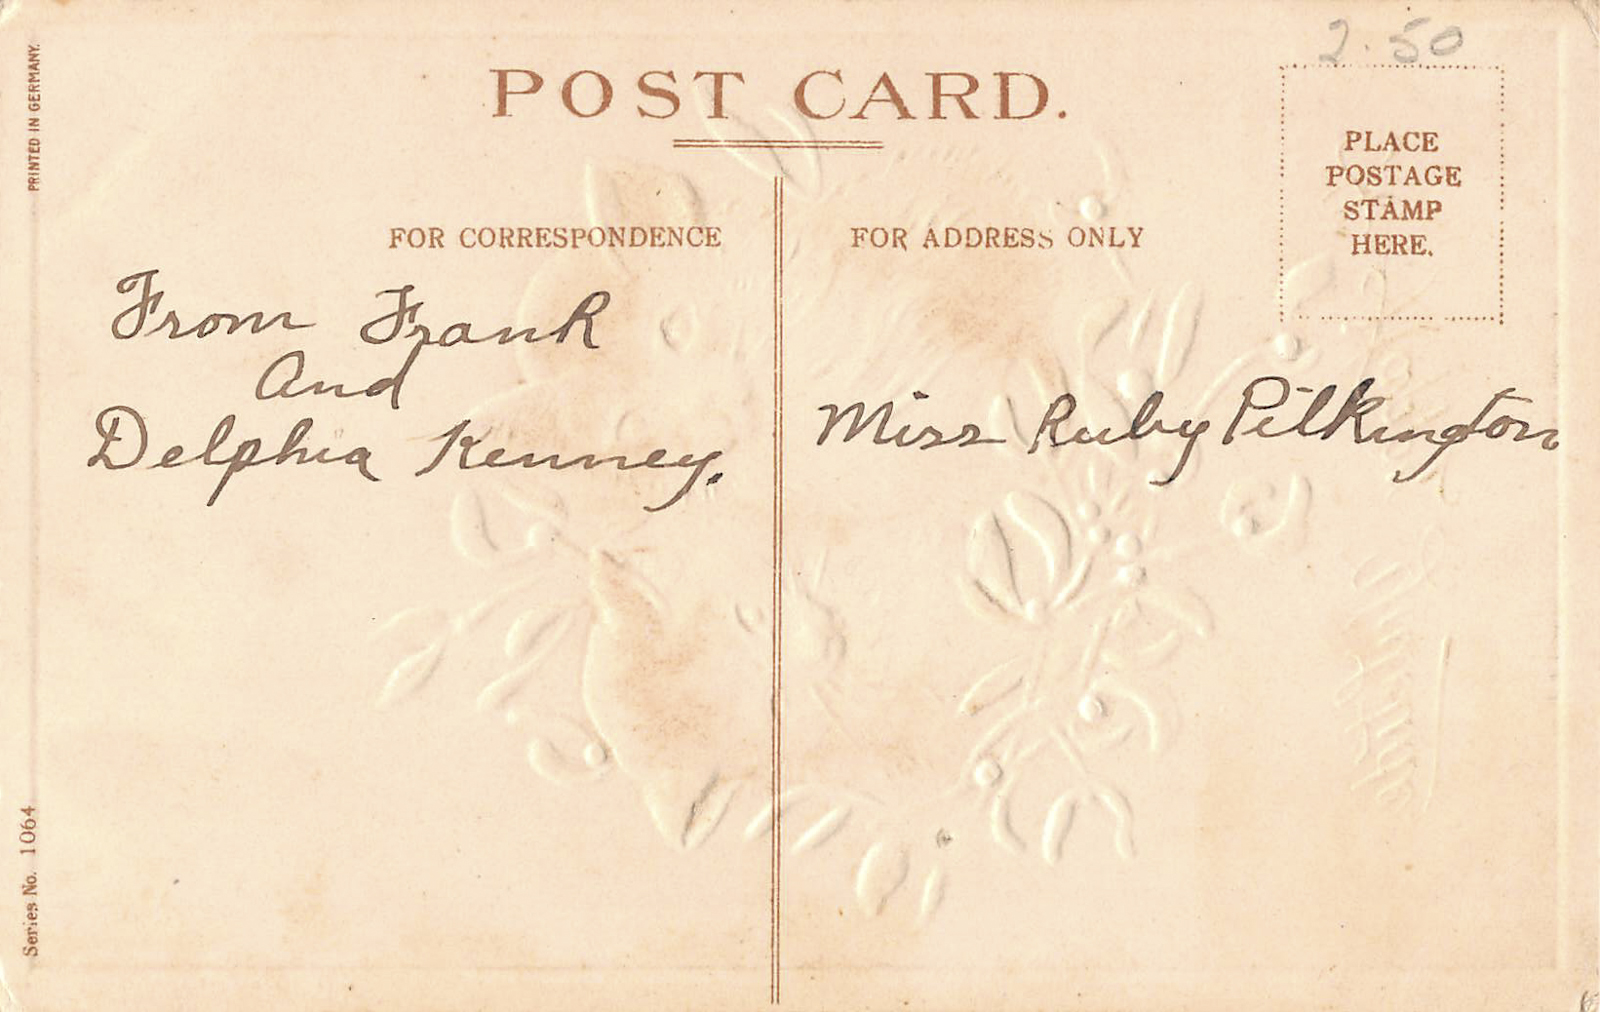 2.50
POST CARD.
PRINTED IN GERMANY.
PLACE
POSTAGE
STAMP
HERE.
FOR CORRESPONDENCE
FOR ADDRESS ONLY
From Frank
And
Delphia Kenney.
Miss Ruby Pilkington
Series No. 1064